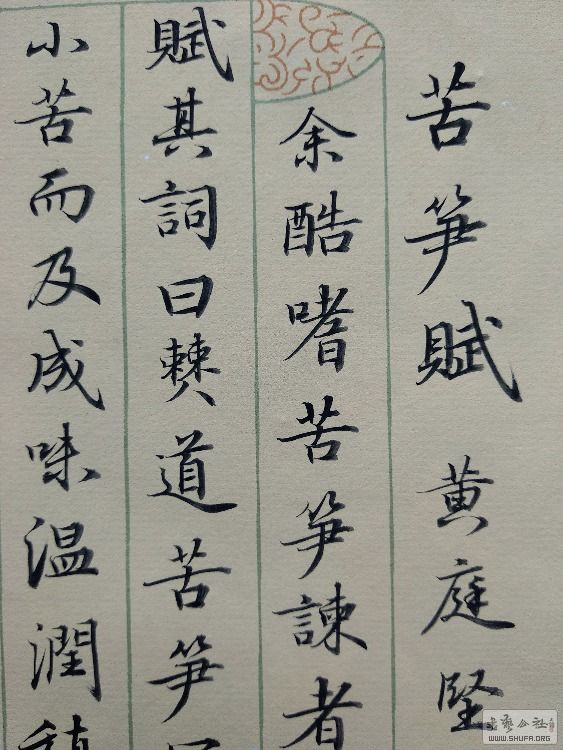 苦笋賦 黄庭堅
余酷嗜苦笋諫者
賦其詞曰僰道苦笋
小苦而及成味温潤縝
WWW.SHUFA.ORG